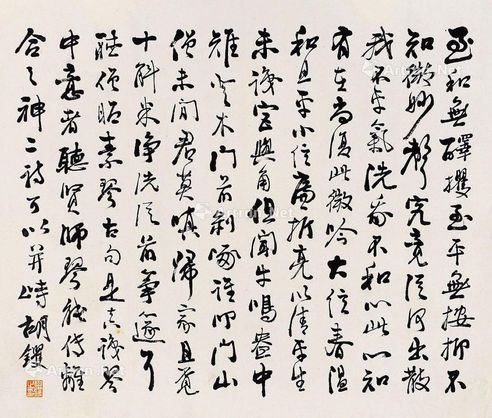 至和無醳攫至平無按抑不
知微妙聲究竟從何出散
我不平氣洗我不和心此心知
有在尚復此微吟大弦春温
和且平小弦廉折亮以清平生
未識宮與角但聞牛鳴盎中
雉登木門前剝啄誰叩門山
僧未閒君莫嗔歸家且覓
千斛水淨洗從前箏邃耳
聽僧昭素琴古句是真識琴
中意者聽賢師琴能傳難
合之神二詩可以並峙 胡钁